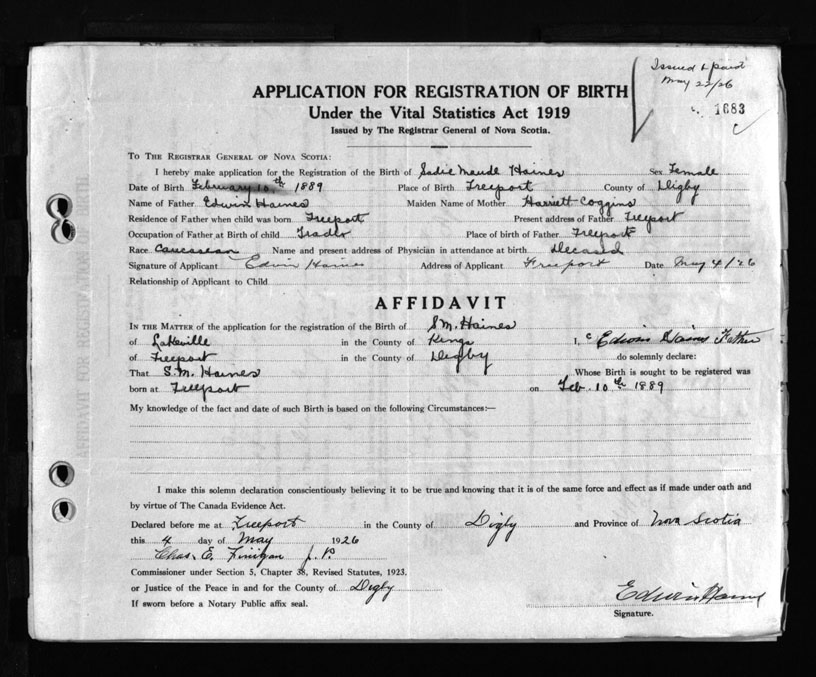 Issued & paid
May 22/26
1683
APPLICATION FOR REGISTRATION OF BIRTH
Under the Vital Statistics Act 1919
Issued by The Registrar General of Nova Scotia.
To The Registrar General of Nova Scotia:
I hereby make application for the Registration of the Birth of Sadie Maude Haines Sex Female
Date of Birth February 10th 1889 Place of Birth Freeport County of Digby
Name of Father Edwin Haines Maiden Name of Mother Harriett Coggins
Residence of Father when child was born Freeport Present address of Father Freeport
Occupation of Father at Birth of child Trader Place of birth of Father Freeport
Race Caucasean Name and present address of Physician in attendance at birth Decased
Signature of Applicant Edwin Haines Address of Applicant Freeport Date May 4/26
Relationship of Applicant to Child
AFFIDAVIT
In the Matter of the application for the registration of the Birth of S M. Haines
of Lakeville in the County of Kings I, Edwin Haines Father
of Freeport in the County of Digby do solemnly declare:
That S. M. Haines Whose Birth is sought to be registered was
born at Freeport on Feb. 10th 1889
My knowledge of the fact and date of such Birth is based on the following Circumstances:—
I make this solemn declaration conscientiously believing it to be true and knowing that it is of the same force and effect as if made under oath and
by virtue of The Canada Evidence Act.
Declared before me at Freeport in the County of Digby and Province of Nova Scotia
this 4 day of May 1926
Chas. E. Finigan J. P.
Commissioner under Section 5, Chapter 38, Revised Statutes, 1923.
or Justice of the Peace in and for the County of Digby
If sworn before a Notary Public affix seal.
Edwin Haines
Signature.